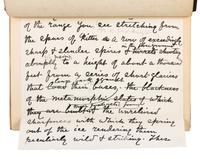 of the range you see stretching from
the spires of Kitter as a row of exceedingly
sharp & slender spires
abruptly to a height of about a thousand
feet from a series of short glaciers
that cover their bases. the blackness
of the metamorphic slates of which
they the unrelieving
sharpness with which they spring
out of the sea rendering them
exceedingly wild & striking. These